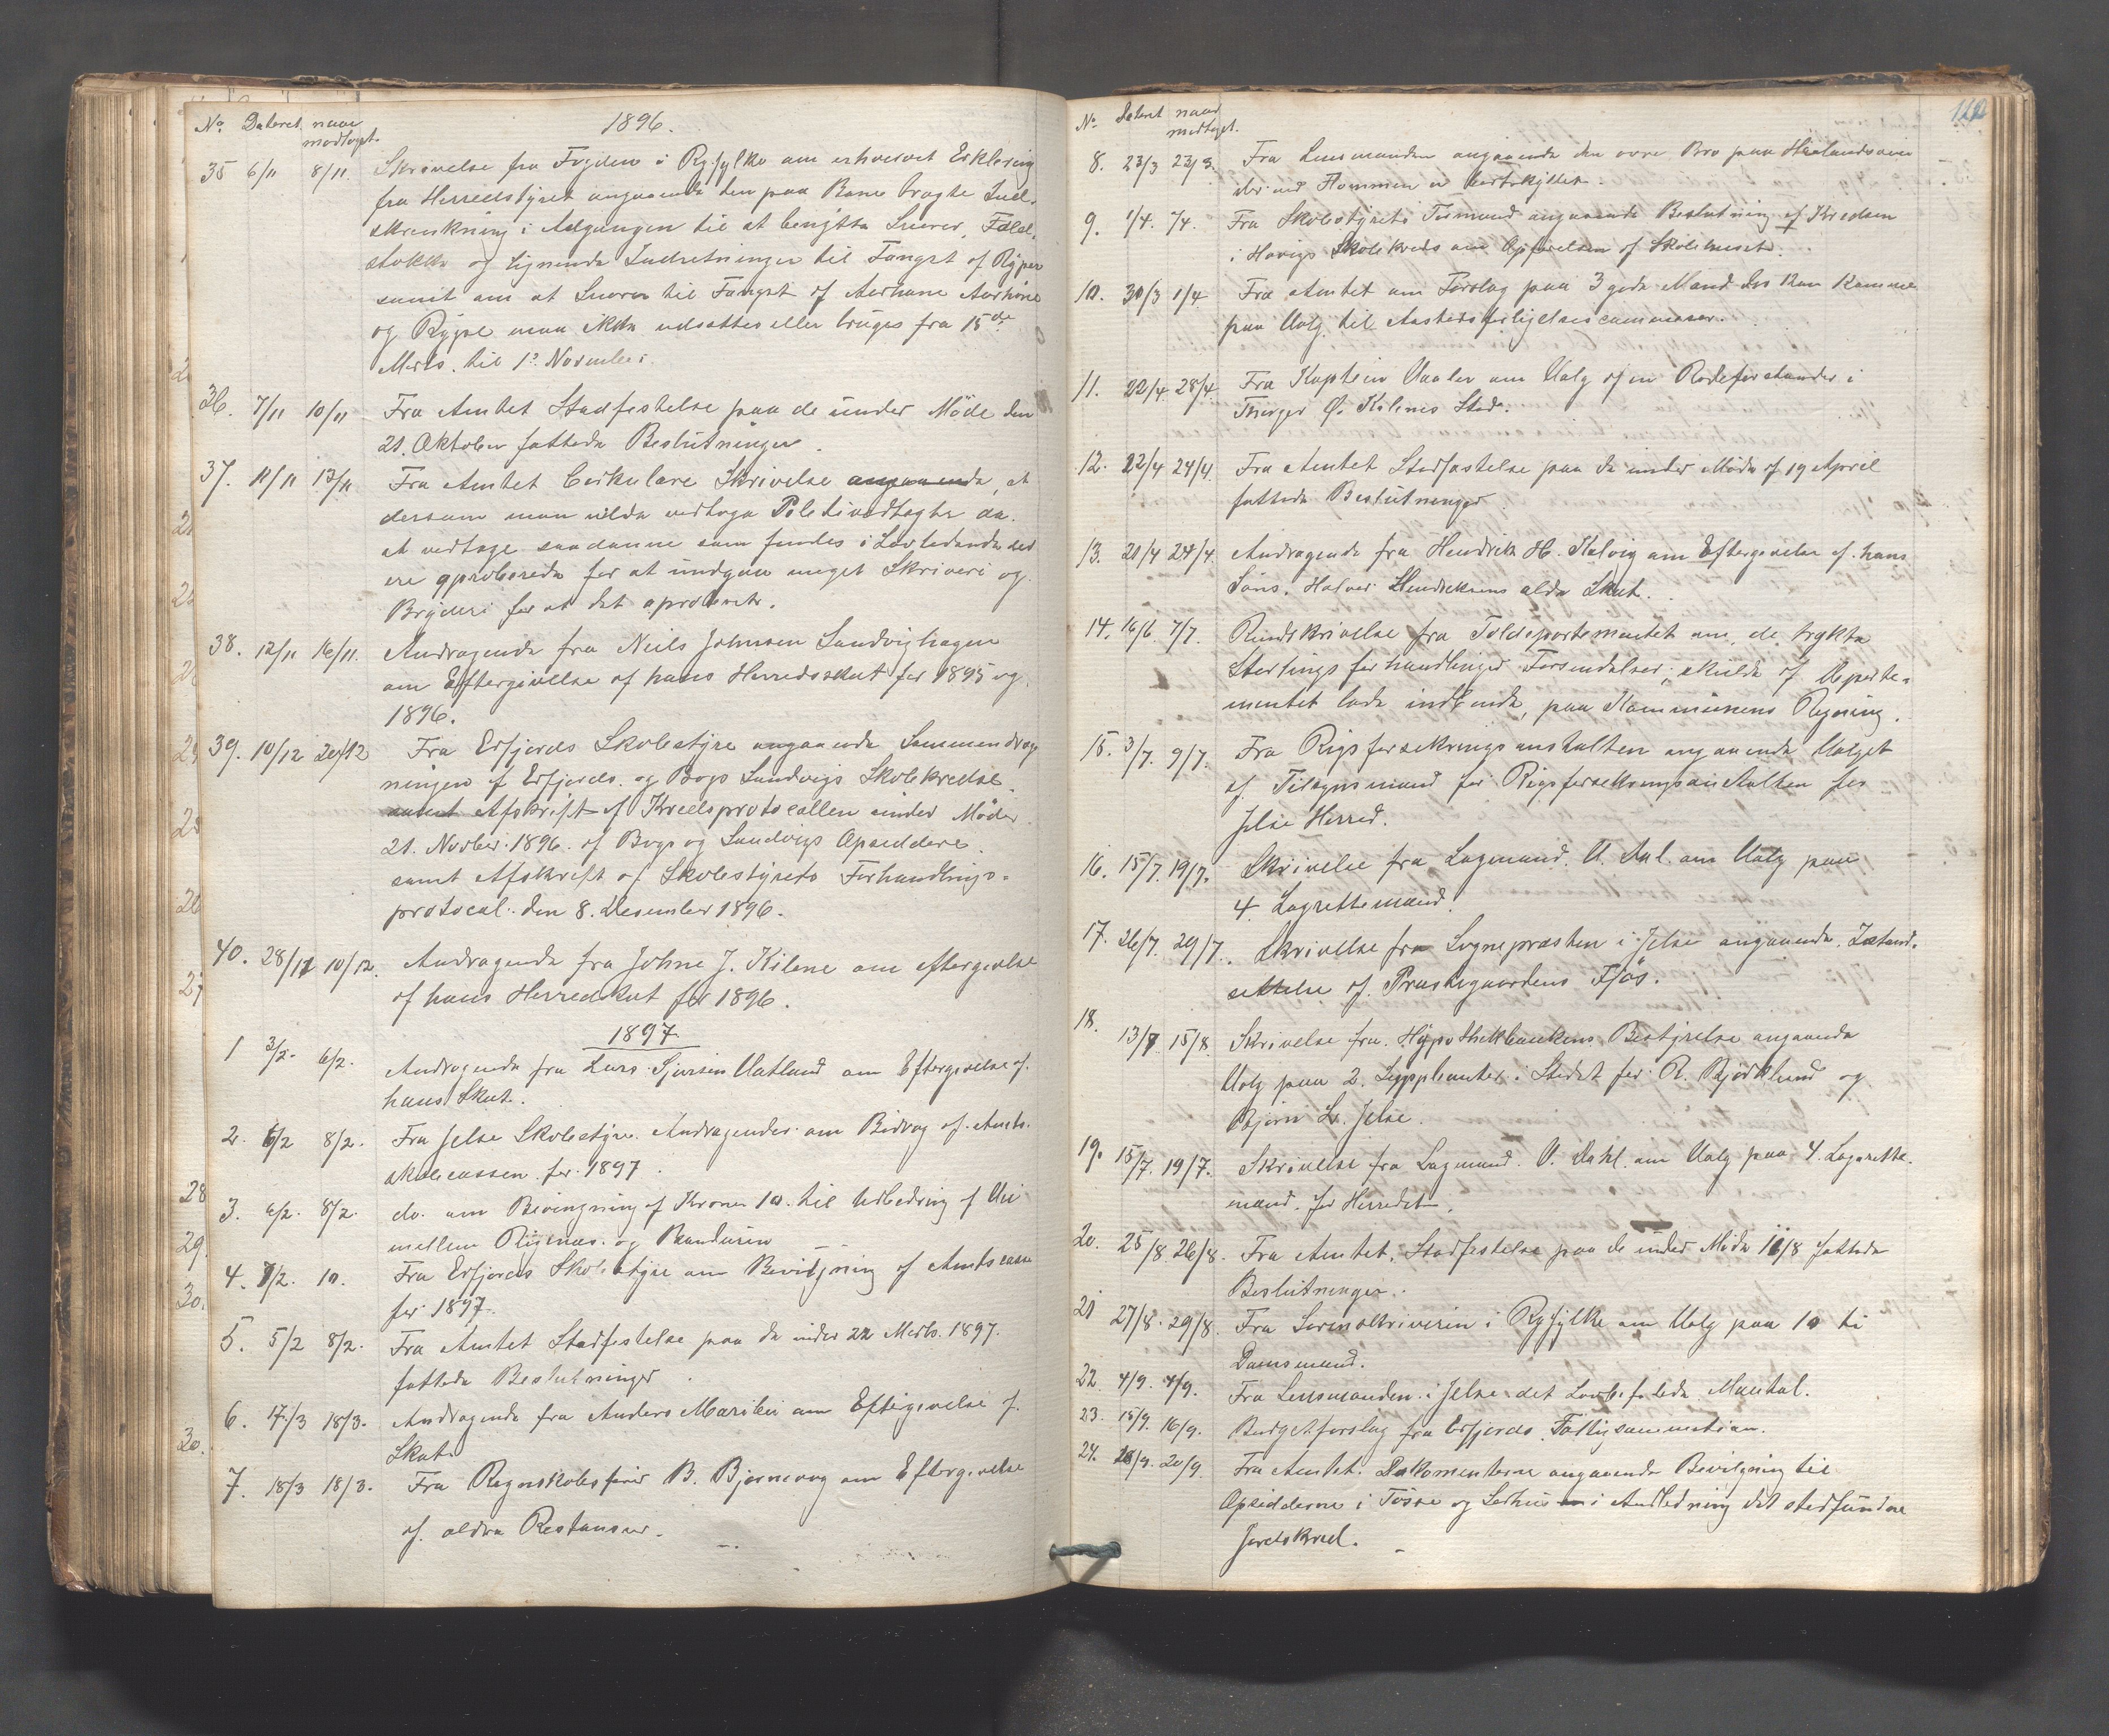 No. Dateret. naar modtaget.
1896.
35 6/11 8/11. Skrivelse fra Fogden i Ryfylke om erhvervet Erklæring
fra Herredstyret angaaende den paa Bane bragte Ind-
skrænkning i Adgangen til at benytte Snerer, Fald-
stokke og lignende Indretninger til Fangst af Ryper
samt om at Snerer til Fangst af Aarhane Aarhøne
og Rype maa ikke udsættes eller bruges fra 15de
Marts. til 1ste November.
36. 7/11 10/11 Fra Amtet Stadfestelse paa de under Møde den
21. Oktober fattede Beslutninger.
37. 11/11 13/11 Fra Amtet Cirkulære Skrivelse angaaende, at
dersom man vilde vedtage Politivedtægter da.
at vedtage saadanne som findes i Lovtidende der
ere aproberede for at undgaa meget Skriveri og
Bryderi for at det aproberes.
38. 12/11 16/11. Andragende fra Niels Johnsen Sandvighagen
om Eftergivelse af hans Herredsskat for 1895 og
1896.
39. 10/12 20/12 Fra Erfjords Skolestyre angaaende Sammendrag-
ningen af Erfjords. og Bogs Sandvigs Skolekredse.
samt Afskrift af Kredsprotocollen under Møder
21. Novber. 1896. af Bogs og Sandvigs Opsiddere.
samt Afskrift af Skolestyrets Forhandlings-
protocol. den 8. Desember 1896.
40. 28/11 10/12. Andragende fra Johne J. Kilene om eftergivelse
af hans Herredskat for 1896.
1897
1 3/2. 6/2. Andragende fra Lars Sjursen Vatland om Eftergivelse af.
hans Skat.
2. 6/2 8/2. Fra Jelse Skolestyre. Andragender om Bidrag af. Amts-
skolecassen for 1897.
3. 6/2. 8/2. do. om Bevilgning af Kroner 10. til Udbedring af Vei
mellem og
4. 8/2. 10. Fra Erfjords Skolestyre om Bevilgning af Amtscasse
for 1897.
5. 5/2 8/2. Fra Amtet Stadfestelse paa de under 22 Marts. 1897.
fattede Beslutninger.
6. 17/3 18/3. Andragende fra Anders Marilei om Eftergivelse af.
Skat.
7. 18/3 18/3. Fra Regnskabsfører B. Bjørnevog om Eftergivelse
af. ældre Restanser.
112
No. Dateret naar modtaget.
8. 23/3 23/3. Fra Lensmanden angaaende den øvre Bro paa Hialandsaaen
der ved Flommen er bortskyllet.
9. 1/4. 7/4. Fra Skolestyrets Formand angaaende Beslutning af Kredsen
i Høvigs Skolekreds om Opførelsen af Skolehuset.
10. 30/3 1/4 Fra Amtet om Forslag paa 3 gode Mænd der kan komme
paa Valg til
11. 22/4. 28/4 Fra Kaptein Vaaler om Valg af en Rodeforstander i
Thorger Ø. Kilenes Sted.
12. 22/4 24/4 Fra Amtet Stadfæstelse paa de under Møde af 19 April
fattede Beslutninger.
13. 21/4 24/4. Andragende fra Hendrik H. Kalvig om Eftergivelse af. hans
Søns. Halvor Hendriksens ældre Skat.
14. 16/6. 7/7. Rundskrivelse fra Toldepartementet om, de trykte
Stortings forhandlinger Forsendelser, skulde af Departe-
mentet lade indbinde, paa Kommunens Regning.
15. 3/7. 9/7. Fra Rigsforsekringsanstalten angaaende Valget
af. Tilsynsmand for Rigsforsekringsanstalten for
Jelse Herred.
16. 15/7. 19/7. Skrivelse fra Lagmand. U. Dal. om Valg paa
4 Lagrettemænd.
17. 26/7. 29/7. Skrivelse fra Sognepræsten i Jelse angaaende. Istand-
settelse af. Præstegaardens Fjøs.
18. 13/8. 15/8. Skrivelse fra. Hypothekbankens Bestyrelse angaaende
Valg paa 2. Suppleanter i Stedet for R. Bjørklund og
Bjørn L. Jelse.
19. 15/7. 19/7. Skrivelse fra Lagmand. U. Dahl. om Valg paa 4. Lagrette-
mænd. for Herredet.
20. 25/8. 26/8. Fra Amtet. Stadfestelse paa de under Møde 11/8 fattede
Beslutninger.
21 27/8. 29/8. Fra Sorenskriveren i Ryfylke om Valg paa 10 ti
Domsmænd.
22. 4/9. 4/9. Fra Lensmanden. i Jelse det Lovbefalede Mantal.
23. 15/9. 16/9. Budgetforslag fra Erfjords Fattigcommission.
24. 18/9. 20/9 Fra Amtet. Dokomenterne angaaende Bevilgning til
Opsidderne i Tøsse og Lerhus i Andledning det stedfundne
Jordskred.